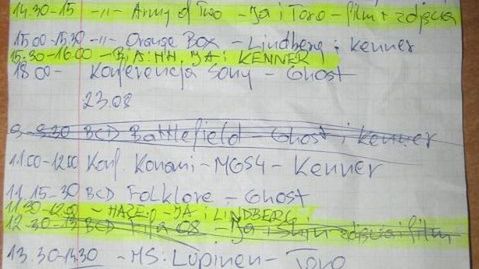 14.30-15 -,,- Army of Two - Ja i Toro - film + zdjęcia
15.00-15.30 -,,- Orange Box - Lindberg i Kenner
15.30-16.00 - BiA:HH, JA i KENNER
18.00 - Konferencja Sony - Ghost
23.08
9-9.30 BCD Battlefield - Ghost i Kenner
11.00-12.00 Konf. Konami - MGS4 - Kenner
11.15-30 BCD Folklore - Ghost
11.30-12.00 - HAZE:D - JA i LINDBERG
12.30-13 BCD Fifa 08 - Ja i zdjęcia i film
13.30-14.30 - MS: Lupinen - Toro